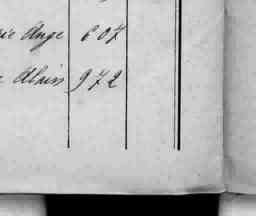 rie Ange 607
e Alain 972